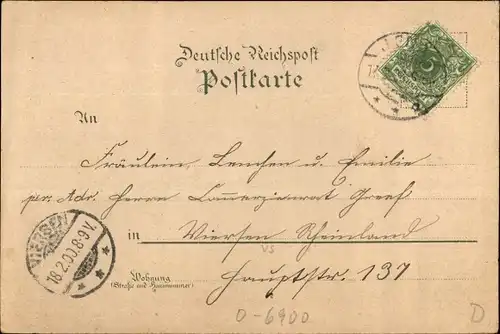 Deutsche Reichspost
Postkarte
An
Fräulein Lenchen u. Emilie
pr. Adr. Herrn Commerzienrat Greef
in Viersen Rheinland
Wohnung
(Straße und Hausnummer)
Hauptstr. 137
VIERSEN
18.2.00.8-9 V.
VS
O-6900
D